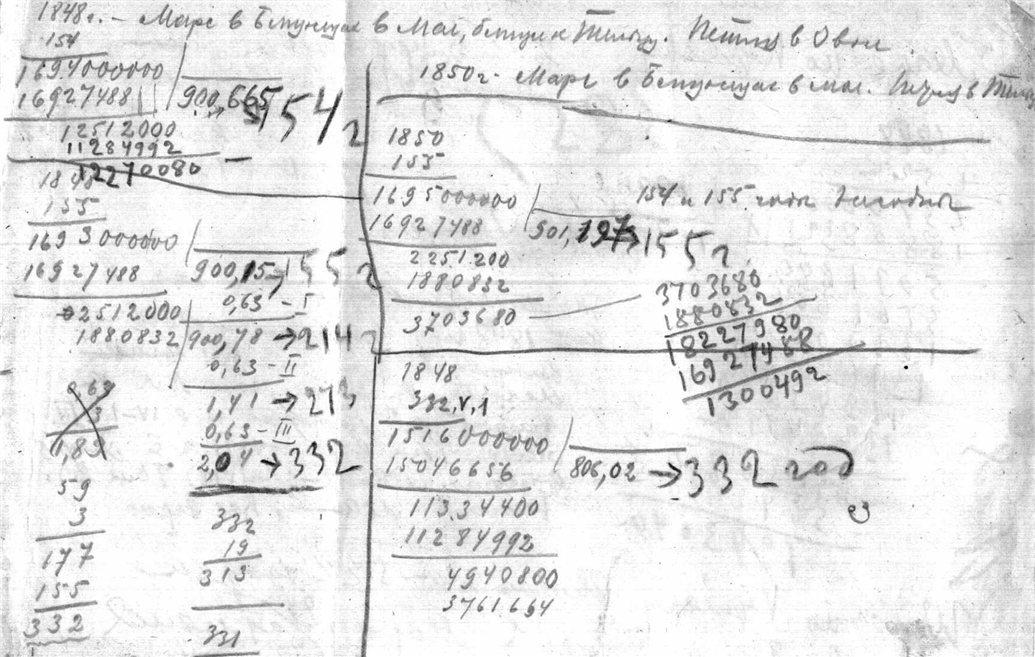 1848 г. – Марс в Близнецах в Мае, ближе к Тельцу. в Овне
154
1694000000
16927488
900,665 → 154 г
12512000
11284992
12270080
1848
155
1693000000
16927488
900,15 → 155 г
02512000
1880832
0,63 – I
900,78 → 214 г
0,63 – II
1,41 → 273
0,63 – III
2,04 → 332
0,63
3
1,89
59
3
177
155
332
332
19
313
331
1850 г. Марс в Близнецах в мае. в
1850
155
1695000000
16927488
901,197 → 155 г.
2251200
1880832
3703680
154 и 155 годы
3703680
1880832
18227980
16927488
1300492
1848
332, V, 1
1516000000
15046656
806,02 → 332 год
11334400
11284992
4940800
3761664